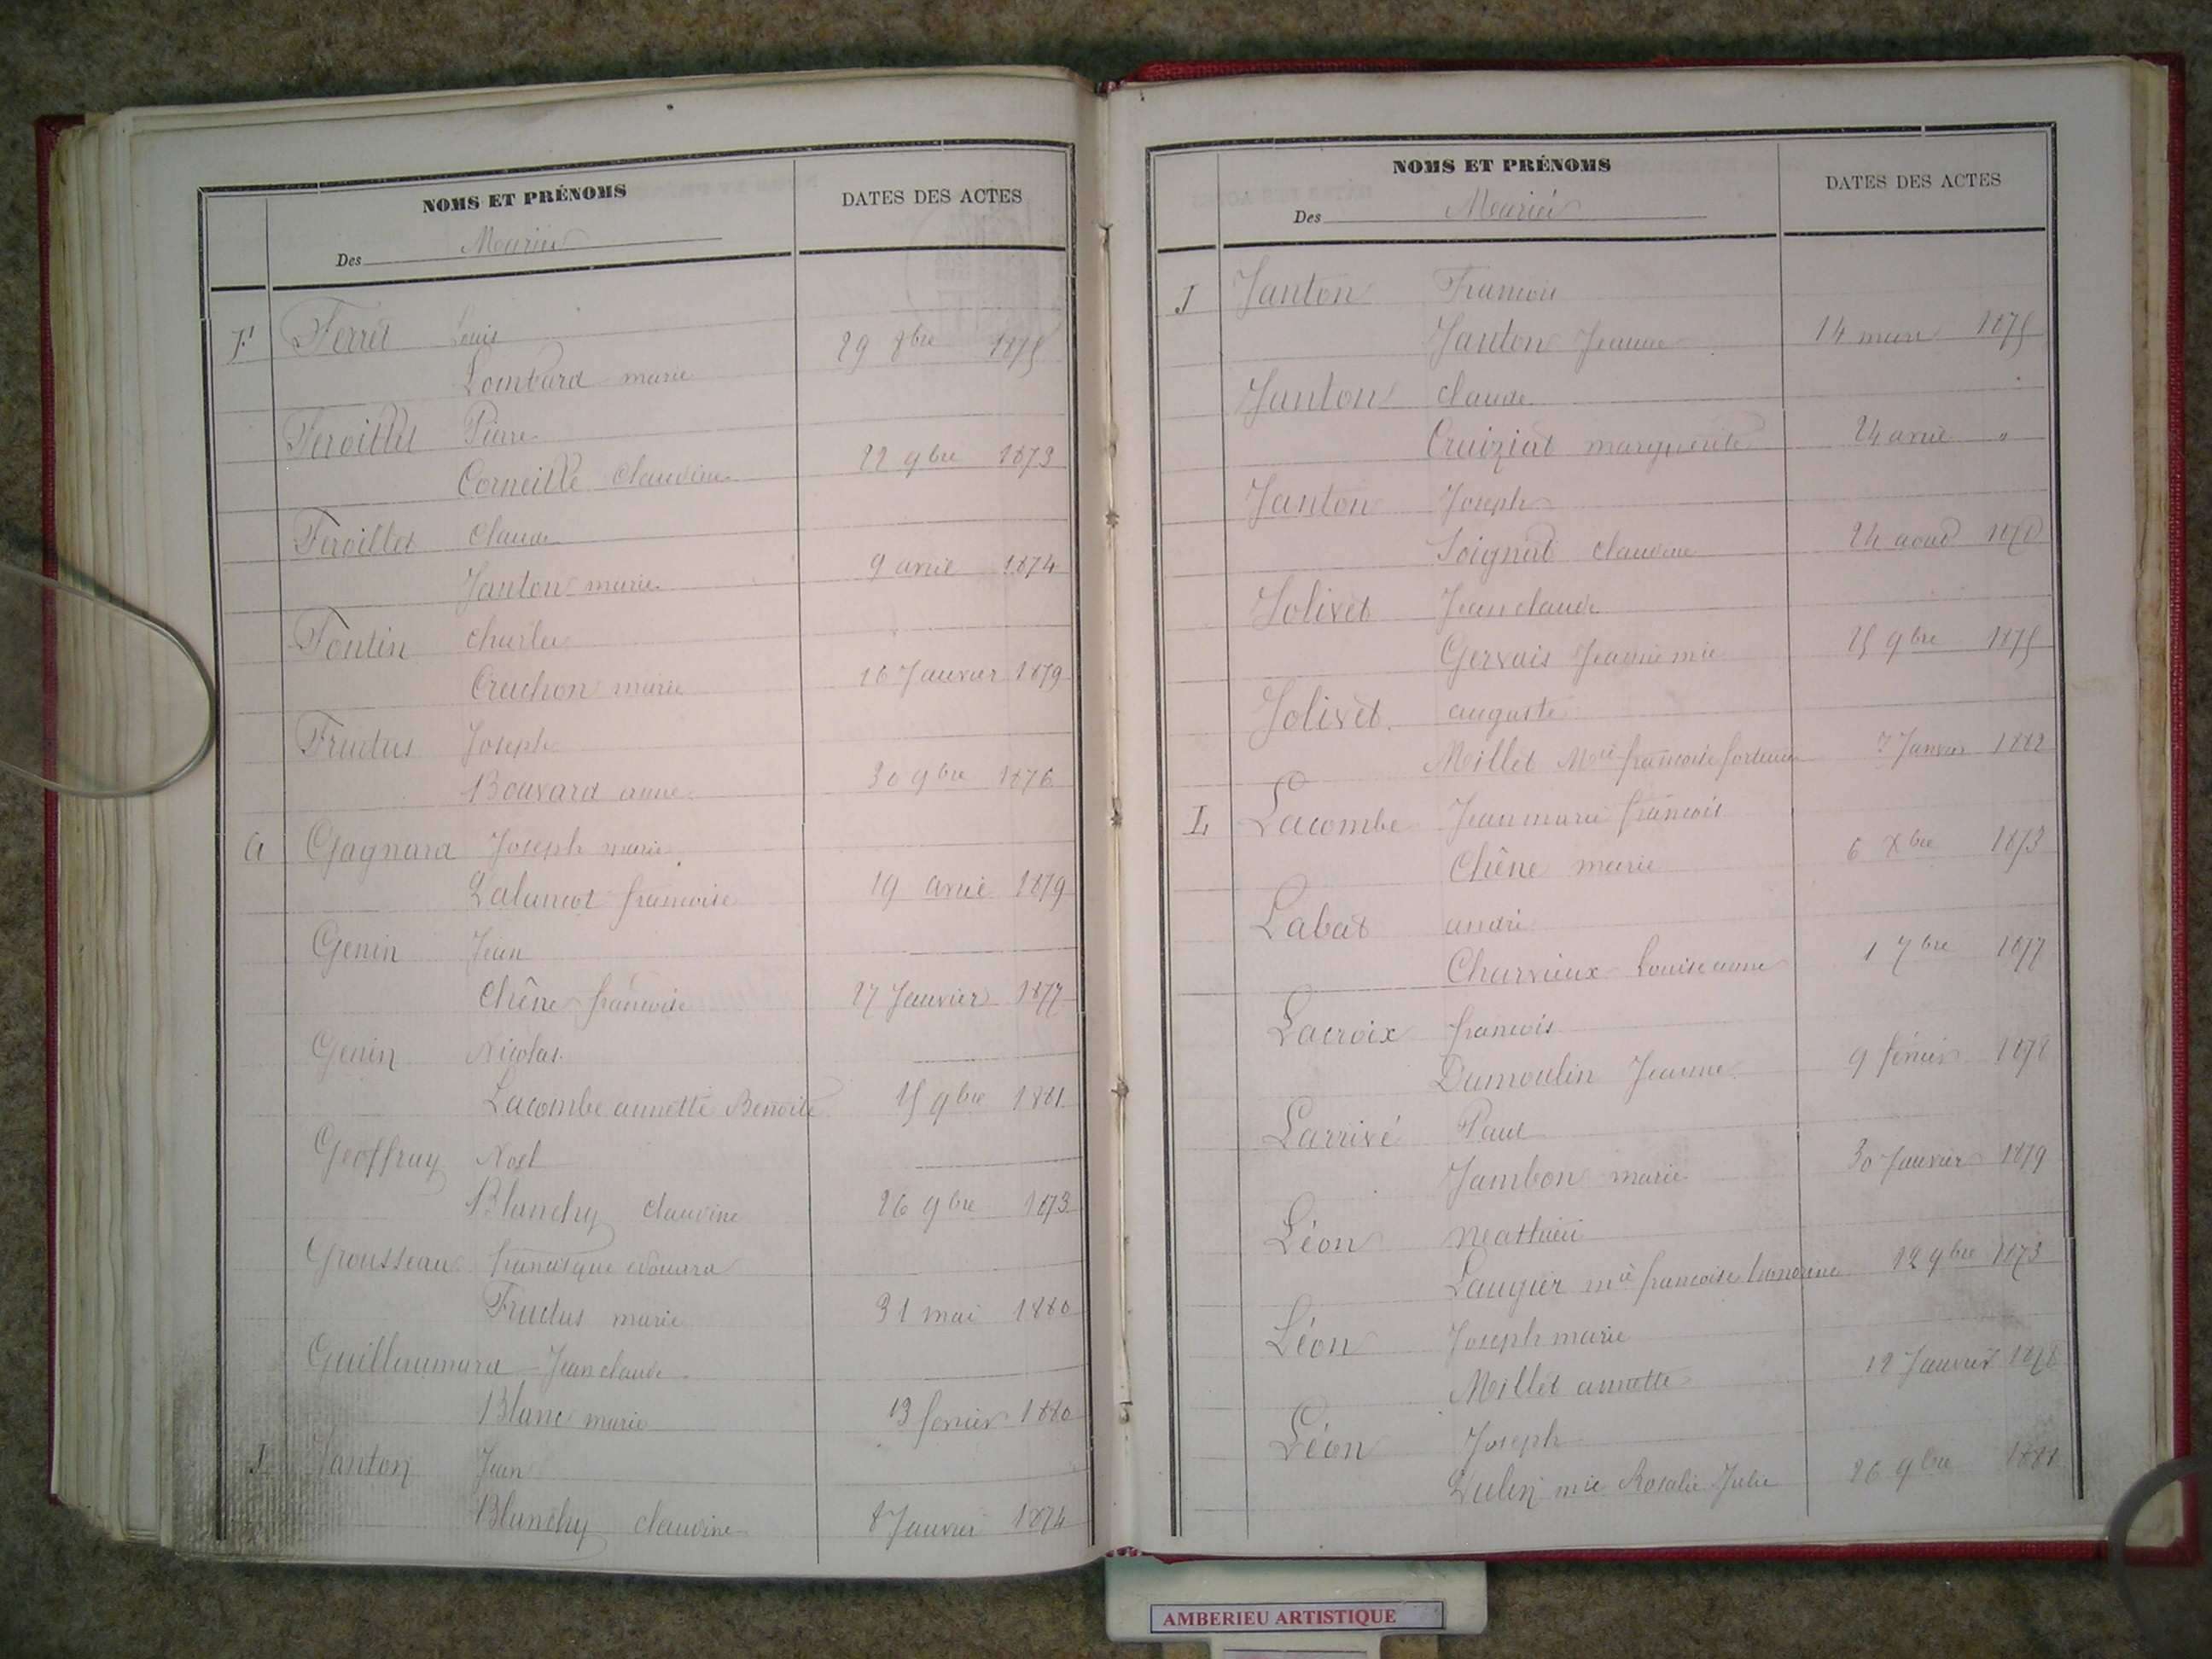 NOMS ET PRÉNOMS
DATES DES ACTES
Des Mariés
F Ferret Louis
Lombard marie 29 8bre 1875
Feroillet Pierre
Corneille Claudine 22 9bre 1873
Feroillet Claude
Janton marie 9 avril 1874
Fontin Charles
Cruchon marie 16 Janvier 1879
Fructus Joseph
Bouvard anne 30 9bre 1876
G Gagnard Joseph marie
françoise 19 avril 1879
Genin Jean
Chêne françoise 27 Janvier 1877
Genin Nicolas
Lacombe annette Benoite 15 9bre 1881
Geoffray Noel
Blanchy claudine 26 9bre 1873
Grousseau francisque edouard
Fructus marie 31 mai 1880
Guillaumard Jean claude
Blanc marie 13 fevrier 1880
J Janton Jean
Blanchy claudine 8 Janvier 1874
NOMS ET PRÉNOMS
DATES DES ACTES
Des Mariés
J Janton Francois
Janton Jeanne 14 mars 1875
Janton claude
Craiziat marguerite 24 avril "
Janton Joseph
Soignat claudine 24 aout 1878
Jolivet Jean claude
Gervais Jeanne mie 25 9bre 1875
Jolivet auguste
Millet Mie francoise 7 Janvier 1882
L Lacombe Jean marie francois
Chêne marie 6 Xbre 1873
Labat andré
Charvieux Louise anne 1 7bre 1877
Lacroix francois
Dumoulin Jeanne 9 février 1878
Larrivé Paul
Jambon marie 30 Janvier 1879
Léon Mathieu
Laugier mie francoise 12 9bre 1873
Léon Joseph marie
Millet annette 12 Janvier 1878
Léon Joseph
mie Rosalie Julie 26 9bre 1881
AMBERIEU ARTISTIQUE